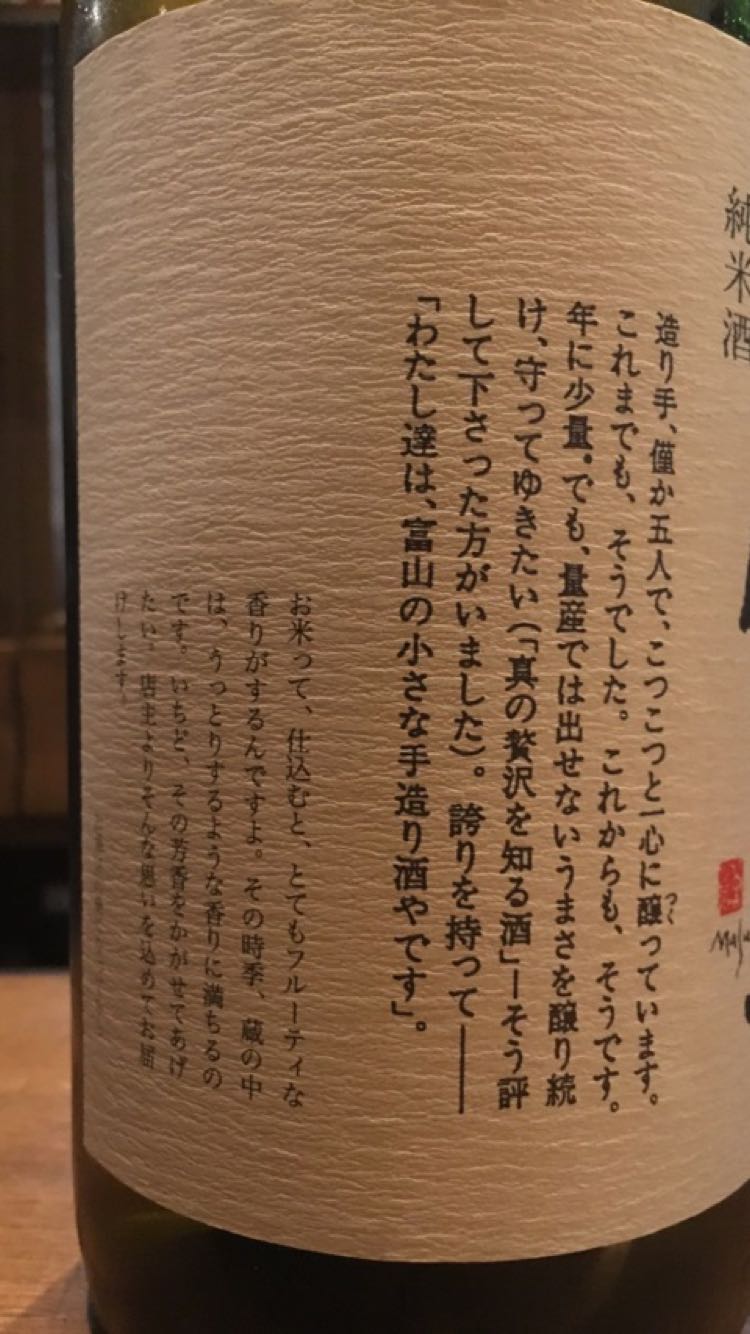 純米酒
造り手、僅か五人で、こつこつと一心に醸っています。
つく
これまでも、そうでした。これからも、そうです。
年に少量。でも、量産では出せないうまさを醸り続
け、守ってゆきたい(「真の贅沢を知る酒」ーそう評
して下さった方がいました)。誇りを持って――
「わたし達は、富山の小さな手造り酒やです」。
お米って、仕込むと、とてもフルーティな
香りがするんですよ。その時季、蔵の中
は、うっとりするような香りに満ちるの
です。いちど、その芳香をかがせてあげ
たい。店主よりそんな思いを込めてお届
けします。